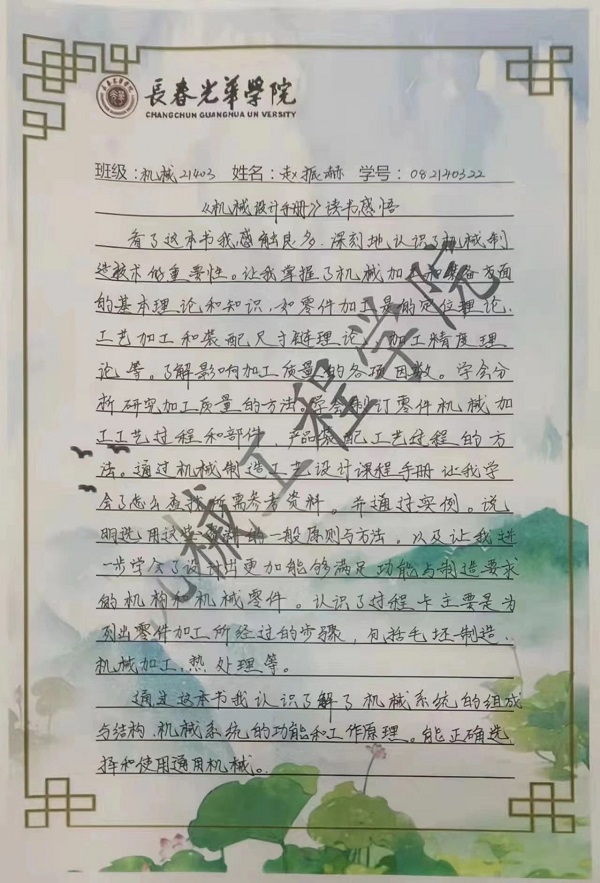 長春光華學院
CHANGCHUN GUANGHUA UN VERSITY
班级:机械21403 姓名:赵振赫 学号:082140322
《机械设计手册》读书感悟
看了这本书我感触良多,深刻地认识了机械制
造技术的重要性。让我掌握了机械加工和装备方面
的基本理论和知识,如零件加工是的定位理论、
工艺加工和装配尺寸链理论、加工精度理
论等。了解影响加工质量的各项因数。学会分
析研究加工质量的方法。学会制订零件机械加
工工艺过程和部件,产品装配工艺过程的方
法。通过机械制造工艺设计课程手册让我学
会了怎么查找所需参考资料。并通过实例。说
明选用这些资料的一般原则与方法。以及让我进
一步学会了设计出更加能够满足功能与制造要求
的机构和机械零件。认识了过程卡主要是为
列出零件加工所经过的步骤,包括毛坯制造、
机械加工,热处理等。
通过这本书我认识了解了机械系统的组成
与结构、机械系统的功能和工作原理。能正确选
择和使用通用机械。
机械工程学院